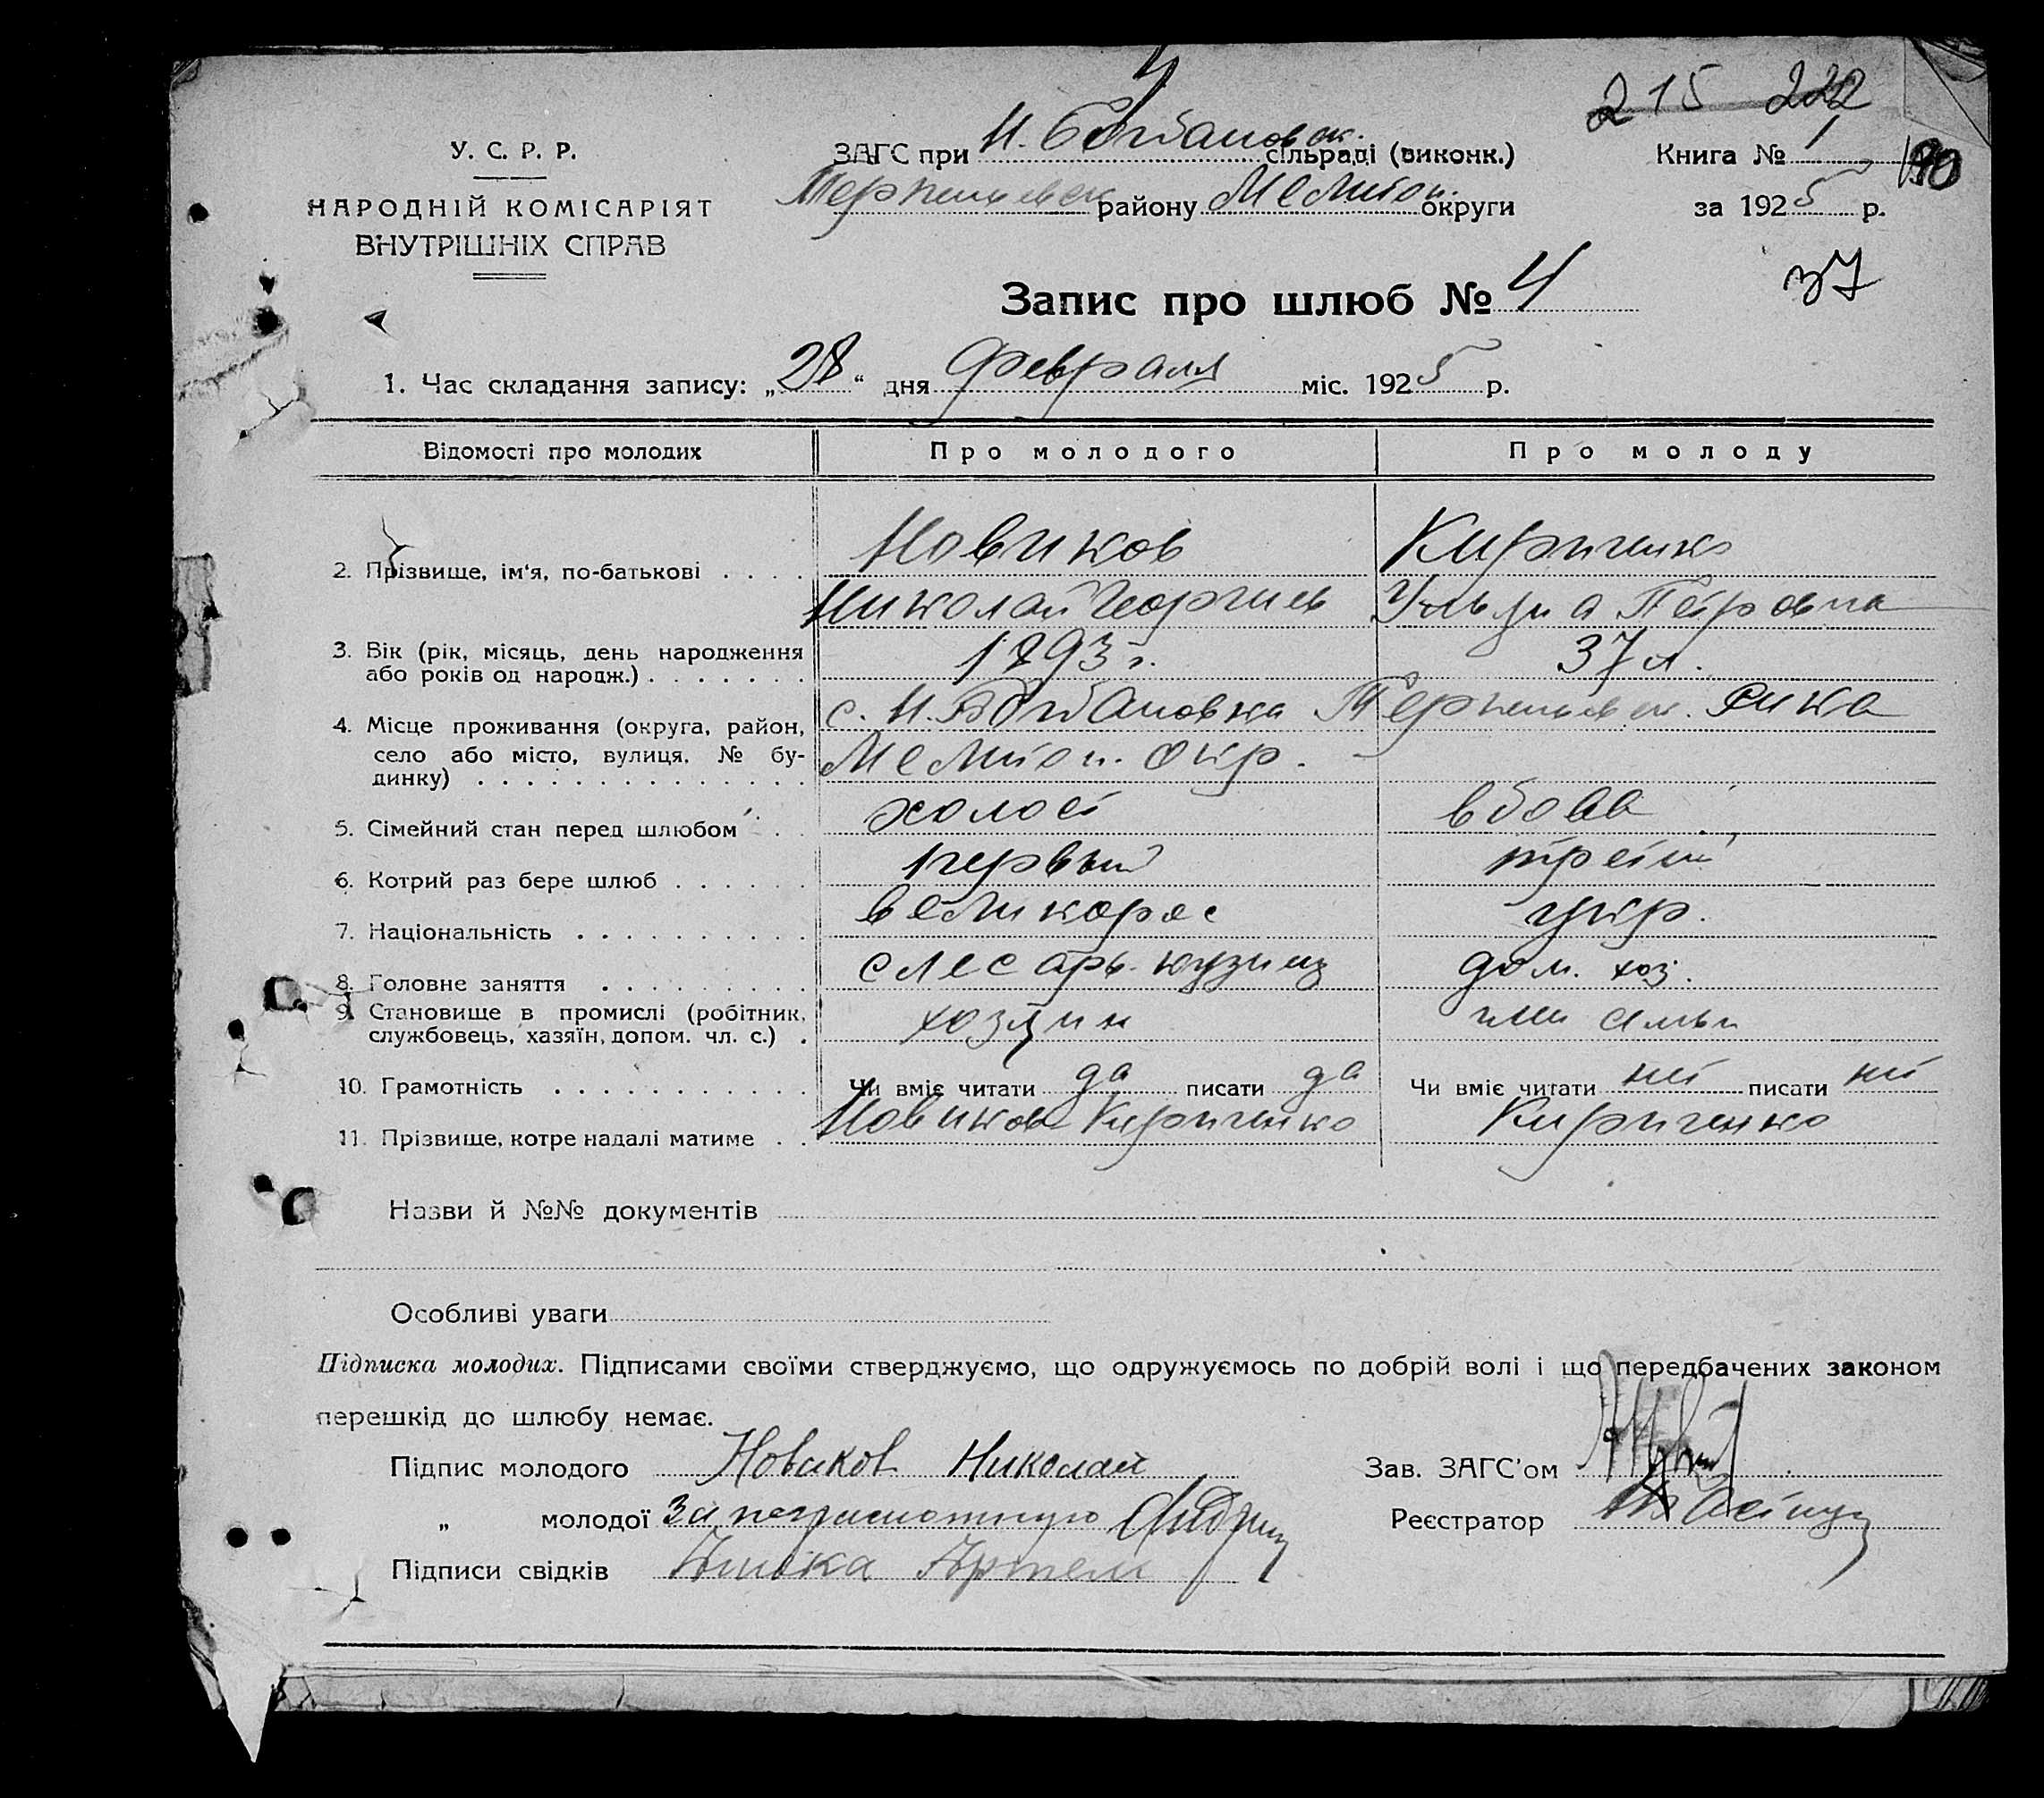 4
215 222
У. С. Р. Р.
ЗАГС при Н. Богдановск. сільраді (виконк.)
Книга № 1
190
НАРОДНІЙ КОМІСАРІЯТ
ВНУТРІШНІХ СПРАВ
Терпеньевск района Мелитоп. округи
за 1925 р.
37
Запис про шлюб № 4
1. Час складання запису: „28“ дня февраля міс. 1925 р.
Відомості про молодих Про молодого Про молоду
2. Прізвище, ім‘я, по-батькові . . . . Новиков Кириченко
Николай Георгиев Ульяна Петровна
3. Вік (рік, місяць, день народження
або років од народж.) . . . . . . . 1893 г. 37 л.
4. Місце проживання (округа, район,
село або місто, вулиця, № бу-
динку) . . . . . . . . . . . . . .
с. Н. Богдановка Терпеньевск. р-на
Мелитоп. окр.
5. Сімейний стан перед шлюбом . . холост вдова
6. Котрий раз бере шлюб . . . . . . первый третий
7. Національність . . . . . . . . . . великорос укр.
8. Головне заняття . . . . . . . . . слесарь-кузнец дом. хоз.
9. Становище в промислі (робітник,
службовець, хазяїн, допом. чл. с.) . хозяин член семьи
10. Грамотність . . . . . . . . . . . Чи вміє читати да писати да Чи вміє читати нет писати нет
11. Прізвище, котре надалі матиме . . Новиков Кириченко Кириченко
Назви й №№ документів
Особливі уваги
Підписка молодих. Підписами своїми стверджуємо, що одружуємось по добрій волі і що передбачених законом
перешкід до шлюбу немає.
Підпис молодого Новиков Николай
Зав. ЗАГС’ом
„ молодої За неграмотную
Реєстратор
Підписи свідків Артем